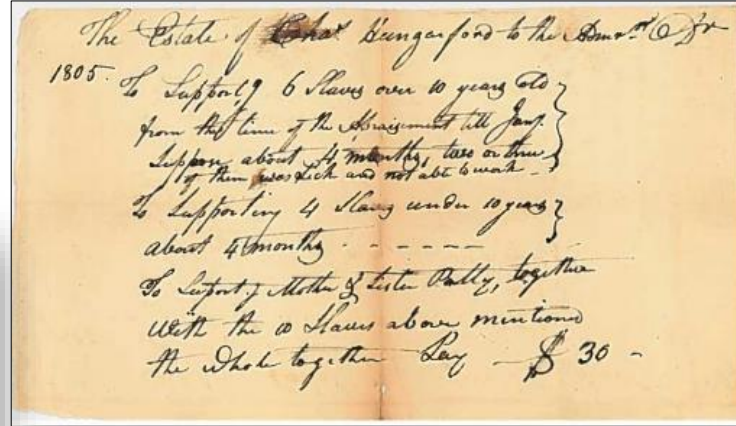 The Estate of Chas Hungerford to the Admr. Dr
1805.
To Supportg 6 Slaves over 10 years old
from the time of the Apraisement till Jany.
Suppose about 4 months, two or three
of them was Sick and not able to work -
To Supporting 4 Slaves under 10 years
about 4 months - - - - - -
To Support.g Mother & Sister Patty, together
With the 10 Slaves above mentioned
the whole together Say - $ 30 -